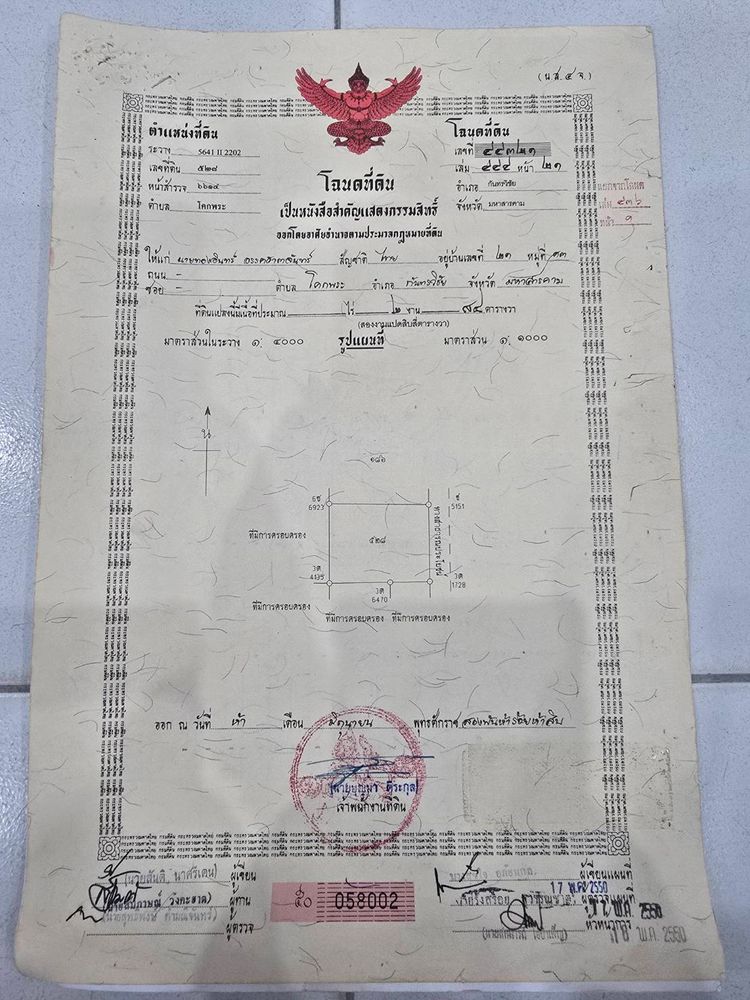 (น.ส.๔ จ.)
ตำแหน่งที่ดิน
ระวาง 5641 II 2202
เลขที่ดิน ๕๒๘
หน้าสำรวจ
ตำบล โคกพระ
โฉนดที่ดิน
เลขที่ ๔๔๓๒๑
เล่ม ๔๔๔ หน้า ๒๑
อำเภอ กันทรวิชัย
จังหวัด มหาสารคาม
แยกจากโฉนด
เล่ม ๔๓๖
หน้า ๑
โฉนดที่ดิน
เป็นหนังสือสำคัญแสดงกรรมสิทธิ์
ออกโดยอาศัยอำนาจตามประมวลกฎหมายที่ดิน
ให้แก่ นายทองอินทร์ สัญชาติ ไทย อยู่บ้านเลขที่ ๒๑ หมู่ที่ ๑๓
ถนน -
ซอย - ตำบล โคกพระ อำเภอ กันทรวิชัย จังหวัด มหาสารคาม
ที่ดินแปลงนี้มีเนื้อที่ประมาณ ไร่ ๒ งาน ๘๔ ตารางวา
(สองงานแปดสิบสี่ตารางวา)
มาตราส่วนในระวาง ๑: ๔๐๐๐ รูปแผนที่ มาตราส่วน ๑: ๑๐๐๐
น
๑๘๖
6ช
6923
ช
5151
ที่มีการครอบครอง
๕๒๘
ทางสาธารณประโยชน์
3ต
4135
3ต
6470
3ต
1728
ที่มีการครอบครอง
ที่มีการครอบครอง ที่มีการครอบครอง
ออก ณ วันที่ ห้า เดือน มิถุนายน พุทธศักราช สองพันห้าร้อยห้าสิบ
(นายบุญมา ตีระกุล)
เจ้าพนักงานที่ดิน
(นายสันติ นาศรีเคน) ผู้เขียน
ผู้ทาน
ผู้ตรวจ
๕๐ 058002
ผู้เขียนแผนที่
17 พ.ค. 2550
ผู้ตรวจแผนที่
พ.ค. 2550
หัวหน้าการ
พ.ค. 2550